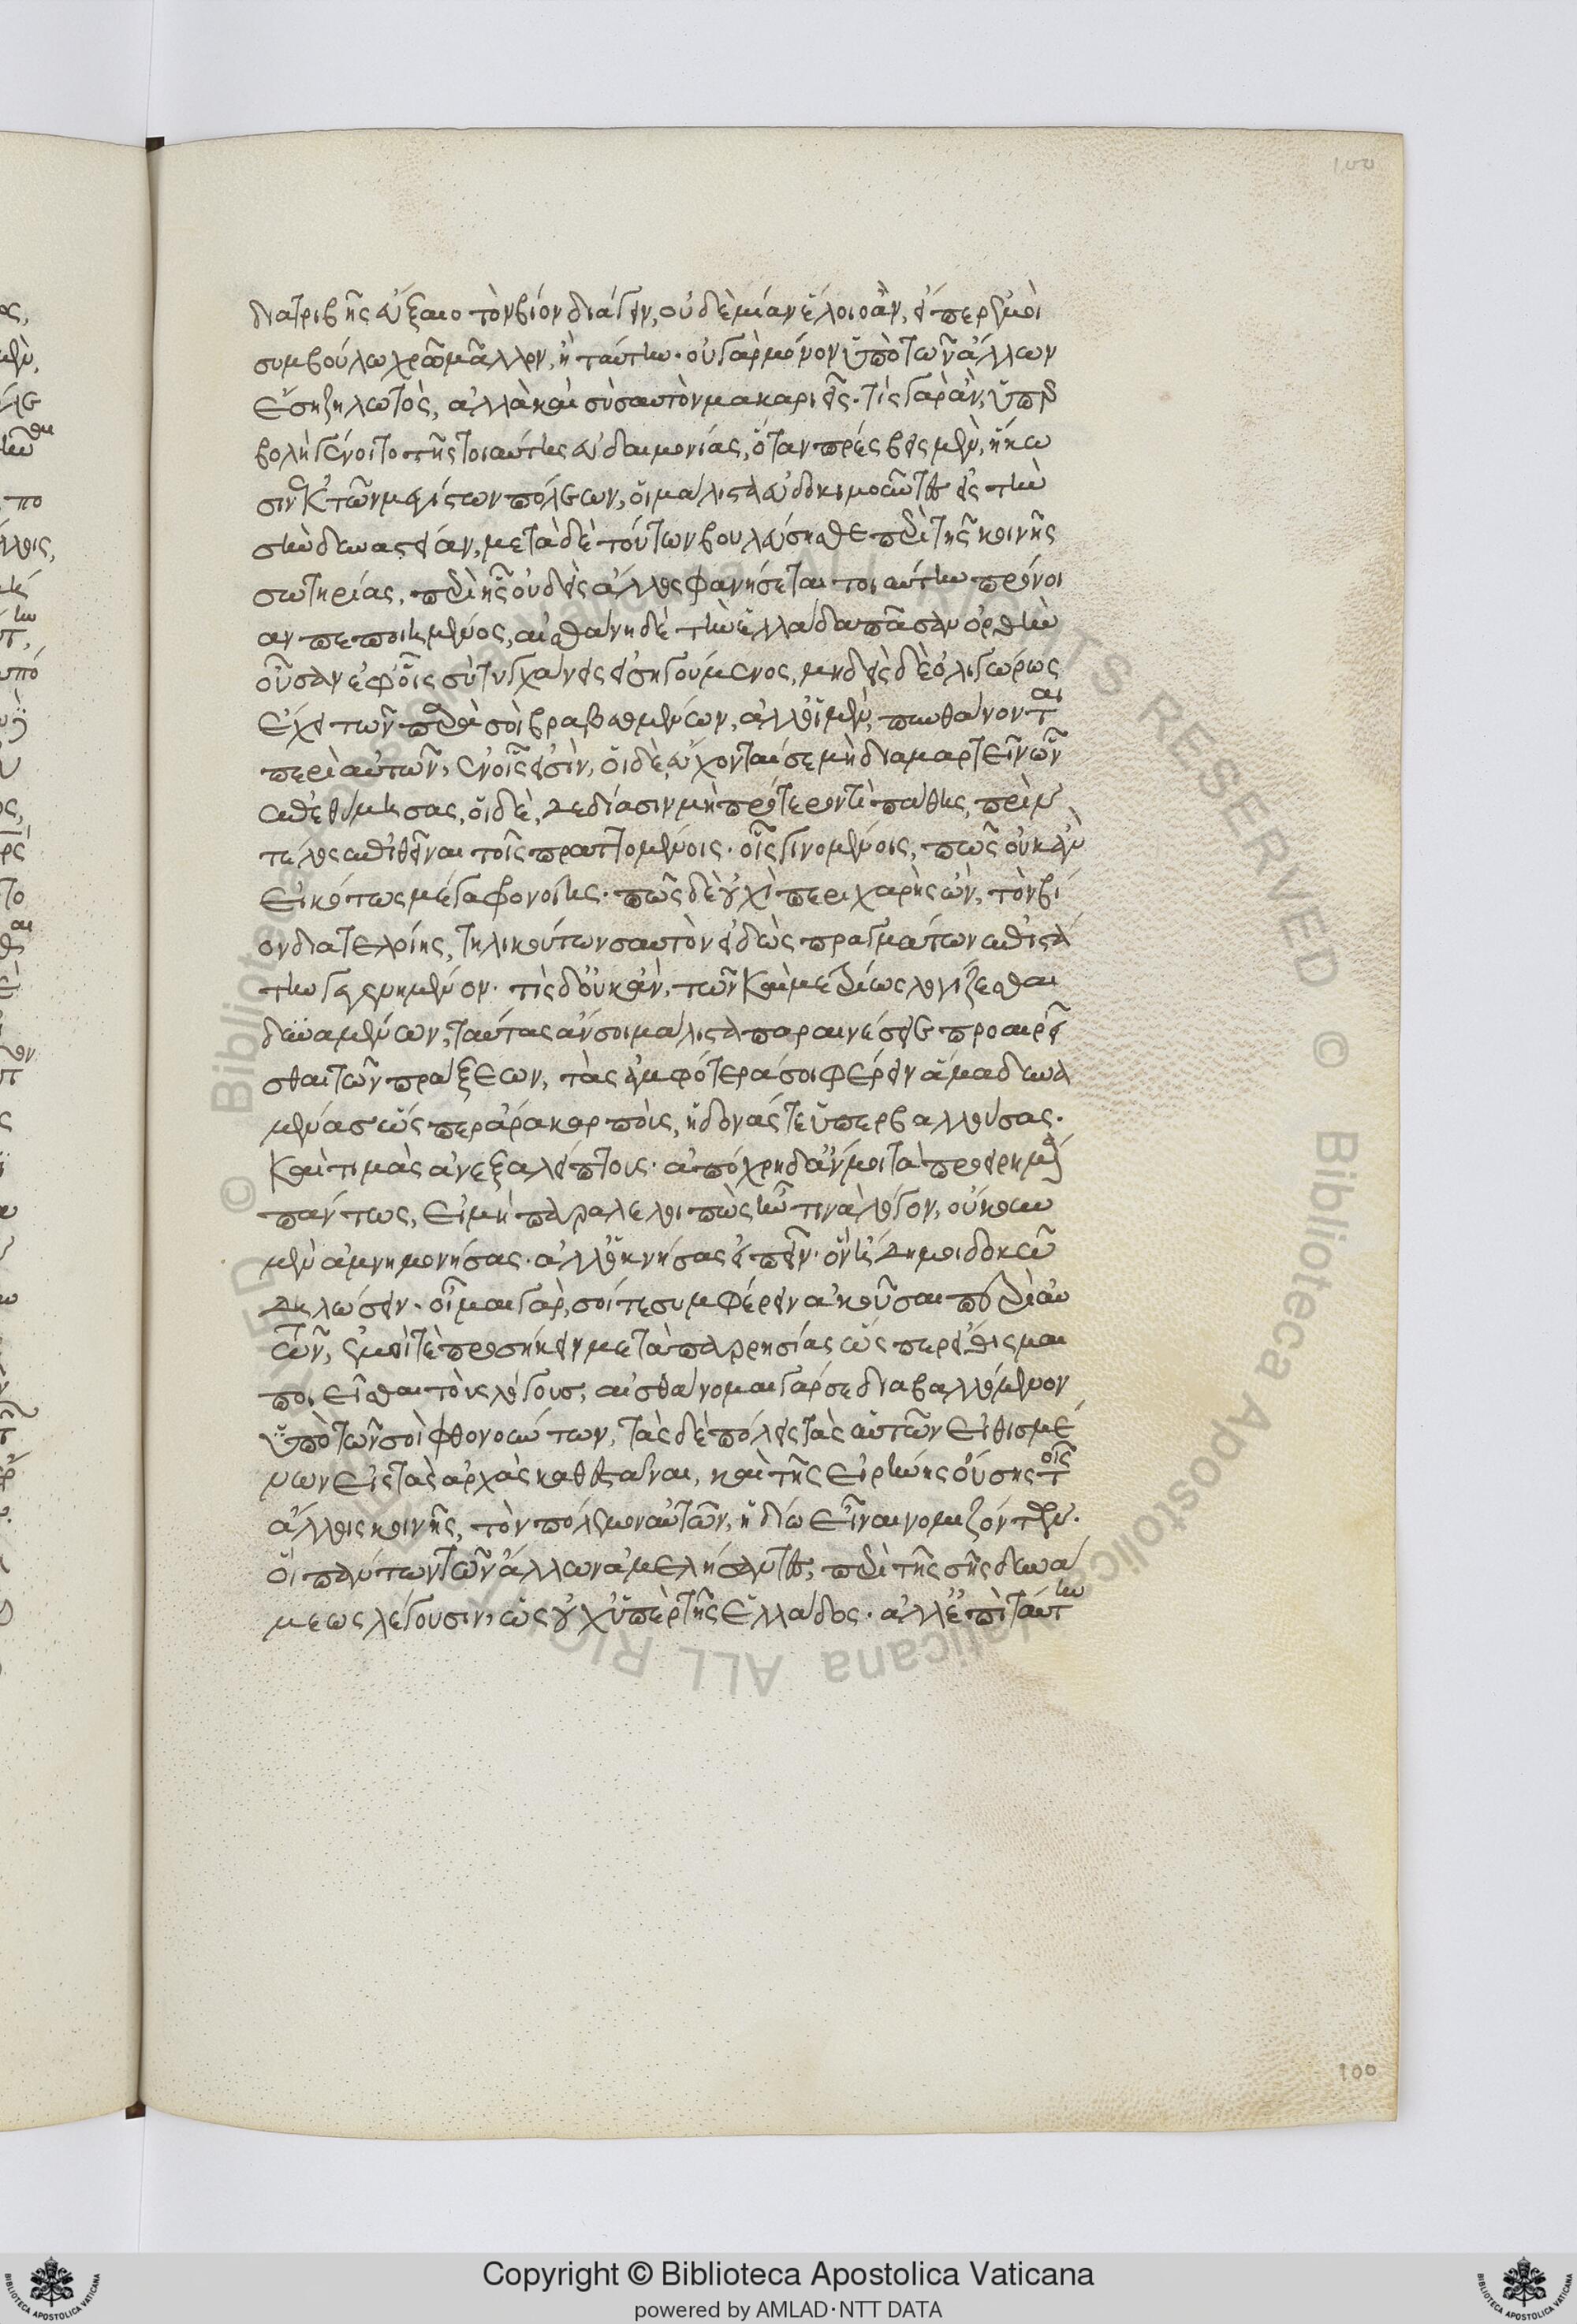 διατριβῆς εὔξαιο τὸν βίον διάγειν, οὐδὲ μίαν ἕλοιο ἂν, εἴπερ ἐμοὶ
συμβούλω χρῶο μᾶλλον, ἢ ταύτην· οὐ γὰρ μόνον ὑπὸ τῶν ἄλλων
ἔση ζηλωτὸς, ἀλλὰ καὶ σὺ σαυτὸν μακαριεῖς· τίς γὰρ ἂν, ὑπερ
βολὴ γένοιτο τῆς τοιαύτης εὐδαιμονίας, ὅταν πρέσβεις μὲν, ἥκω
σιν ἐκ τῶν μεγίστων πόλεων, οἱ μάλιστα εὐδοκιμοῦντες εἰς τὴν
σὴν δυναστείαν, μετὰ δὲ τούτων βουλεύσησθε περὶ τῆς κοινῆς
σωτηρίας, περὶ ἧς οὐδεὶς ἄλλος φανήσεται τοιαύτην πρόνοι
αν πεποιημένος, αἰσθάνη δὲ τὴν ἑλλάδα πᾶσαν ὀρθὴν
οὖσαν ἐφ' οἷς σὺ τυγχάνεις εἰσηγούμενος, μηδεὶς δὲ ὀλιγώρως
ἔχει τῶν παρὰ σοὶ βραβευομένων, ἀλλ' οἱ μὲν, πυνθάνονται
περὶ αὐτῶν, ἐν οἷς εἰσὶν, οἱ δὲ, εὔχονταί σε μὴ διαμαρτεῖν ὧν
ἐπεθύμησας, οἱ δὲ, δεδίασιν μὴ πρότερόν τι πάθης, πρὶν
τέλος ἐπιθεῖναι τοῖς πραττομένοις· οἷς γινομένοις, πῶς οὐκ ἂν
εἰκότως μέγα φρονοίης· πῶς δὲ οὐχὶ περιχαρὴς ὢν, τὸν βί
ον διατελοίης, τηλικούτων σαυτὸν εἰδὼς πραγμάτων ἐπιστά
την γεγενημένον· τίς δ' οὐκ ἂν, τῶν καὶ μετρίως λογίζεσθαι
δυναμένων, ταύτας ἄν σοι μάλιστα παραινέσειε προαιρεῖ
σθαι τῶν πράξεων, τὰς ἀμφότερά σοι φέρειν ἅμα δυνα
μένας ὥσπερ ἀρα καρποὺς, ἡδονάς τε ὑπερβαλλούσας·
καὶ τιμὰς ἀνεξαλείπτους· ἀπόχρη δ' ἄν μοι τὰ προειρημένα
πάντως, εἰ μὴ παραλέλοιπὼς ἦν τινὰ λόγον, οὐκ ἂν
μὲν ἀμνημονήσας· ἀλλ' ὀκνήσας εἰπεῖν· ὃν ἤδη μοι δοκῶ
δηλώσειν· οἶμαι γὰρ, σοί τε συμφέρειν ἀκοῦσαι περὶ αὐ
τῶν, ἐμοί τὲ προσήκειν μετὰ παρρησίας ὥσπερ εἴθισμαι
ποιεῖσθαι τοὺς λόγους, αἰσθάνομαι γάρ σε διαβαλλόμενον
ὑπὸ τῶν σοὶ φθονούντων, τὰς δὲ πόλεις τὰς αὑτῶν εἰθισμέ
νων εἰς ταραχὰς καθιστάναι, καὶ τῆς εἰρήνης οὔσης τοῖς
ἄλλοις κοινῆς, τὸν πόλεμον αὑτῶν, ἴδιον εἶναι νομιζόντων·
οἳ πάντων τῶν ἄλλων ἀμελήσαντες, περὶ τῆς σῆς δυνά
μεως λέγουσιν, ὡς οὐχ ὑπὲρ τῆς ἑλλάδος· ἀλλ' ἐπὶ ταύτην